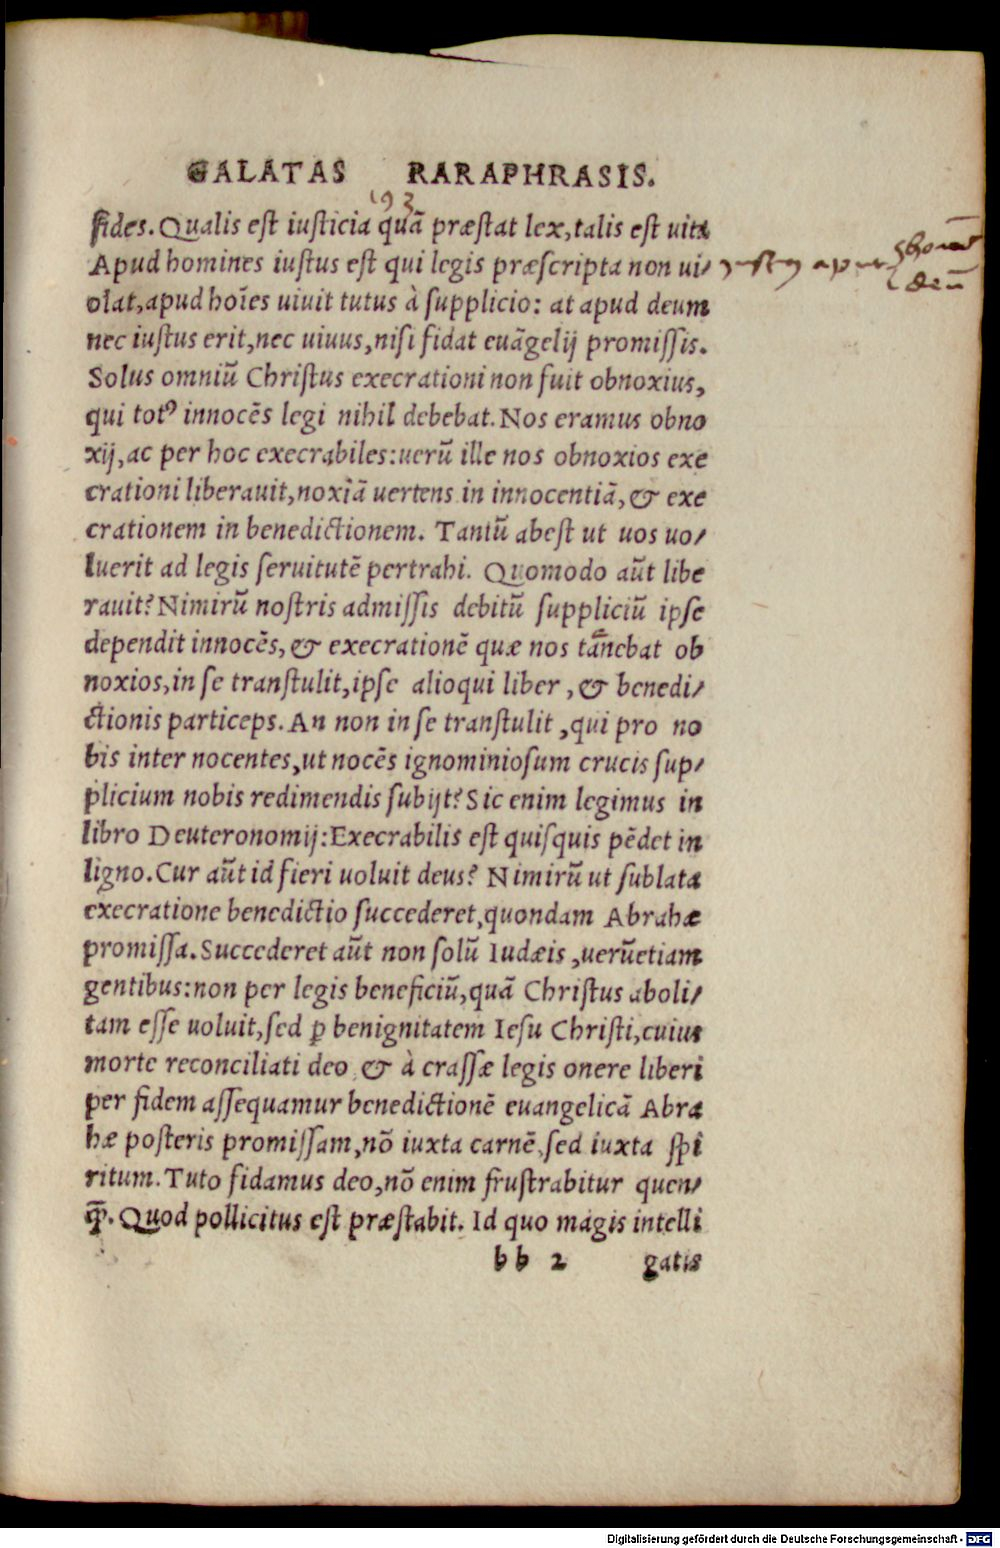 GALATAS RARAPHRASIS.
193
fides. Qualis est iusticia quã præstat lex, talis est uita
Apud homines iustus est qui legis præscripta non ui/
olat, apud hoĩes uiuit tutus à supplicio: at apud deum
nec iustus erit, nec uiuus, nisi fidat euãgelij promissis.
Solus omniũ Christus execrationi non fuit obnoxius,
qui totꝰ innocẽs legi nihil debebat. Nos eramus obno
xij, ac per hoc execrabiles: uerũ ille nos obnoxios exe
crationi liberauit, noxiã uertens in innocentiã, & exe
crationem in benedictionem. Tantũ abest ut uos uo/
luerit ad legis seruitutẽ pertrahi. Quomodo aũt libe
rauit? Nimirũ nostris admissis debitũ suppliciũ ipse
dependit innocẽs, & execrationẽ quæ nos tãnebat ob
noxios, in se transtulit, ipse alioqui liber, & benedi/
ctionis particeps. An non in se transtulit, qui pro no
bis inter nocentes, ut nocẽs ignominiosum crucis sup/
plicium nobis redimendis subijt? Sic enim legimus in
libro Deuteronomij: Execrabilis est quisquis pẽdet in
ligno. Cur aũt id fieri uoluit deus? Nimirũ ut sublata
execratione benedictio succederet, quondam Abrahæ
promissa. Succederet aũt non solũ Iudæis, uerũetiam
gentibus: non per legis beneficiũ, quã Christus aboli/
tam esse uoluit, sed ꝑ benignitatem Iesu Christi, cuius
morte reconciliati deo & à crassæ legis onere liberi
per fidem assequamur benedictionẽ euangelicã Abra
hæ posteris promissam, nõ iuxta carnẽ, sed iuxta spi
ritum. Tuto fidamus deo, nõ enim frustrabitur quen/
q̃. Quod pollicitus est præstabit. Id quo magis intelli
bb 2 gatis
deũ
Digitalisierung gefördert durch die Deutsche Forschungsgemeinschaft - DFG